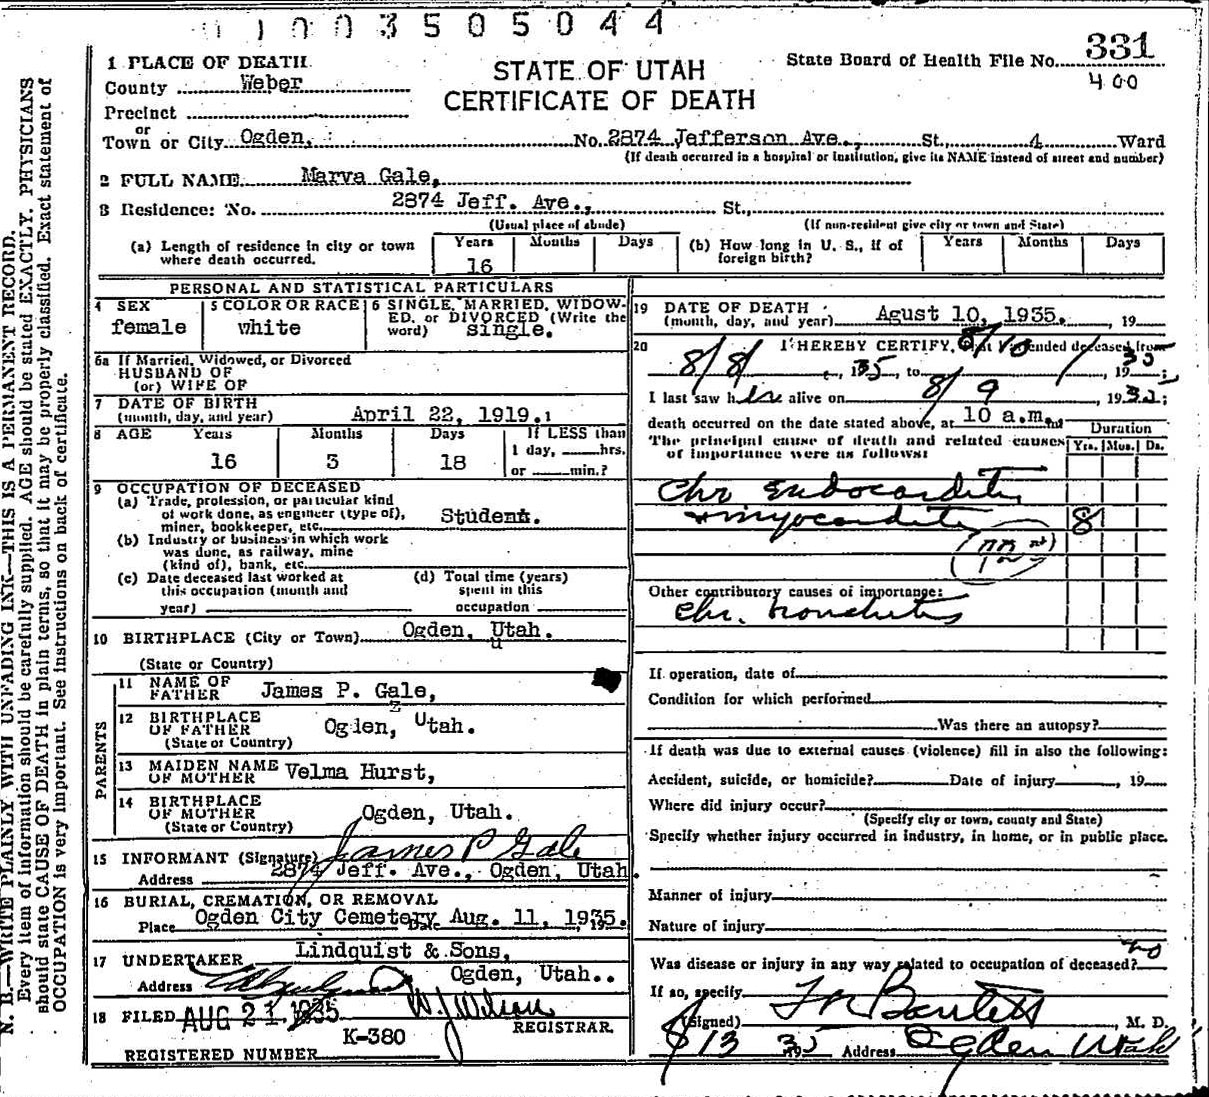 0 1 0 0 3 5 0 5 0 4 4
N. B.—WRITE PLAINLY WITH UNFADING INK—THIS IS A PERMANENT RECORD.
Every item of information should be carefully supplied. AGE should be stated EXACTLY. PHYSICIANS
should state CAUSE OF DEATH in plain terms, so that it may be properly classified. Exact statement of
OCCUPATION is very important. See instructions on back of certificate.
STATE OF UTAH
CERTIFICATE OF DEATH
State Board of Health File No. 331
400
1 PLACE OF DEATH
County Weber
Precinct
or
Town or City Ogden, No. 2874 Jefferson Ave., St., 4 Ward
(If death occurred in a hospital or institution, give its NAME instead of street and number)
2 FULL NAME Marva Gale,
3 Residence: No. 2874 Jeff. Ave., St.,
(Usual place of abode) (If non-resident give city or town and State)
(a) Length of residence in city or town where death occurred. Years 16 Months Days
(b) How long in U. S., if of foreign birth? Years Months Days
PERSONAL AND STATISTICAL PARTICULARS
4 SEX female
5 COLOR OR RACE white
6 SINGLE, MARRIED, WIDOWED, or DIVORCED (Write the word) single.
6a If Married, Widowed, or Divorced
HUSBAND OF
(or) WIFE OF
7 DATE OF BIRTH
(month, day, and year) April 22, 1919.
8 AGE Years Months Days If LESS than
16 3 18 1 day, hrs.
or min.?
9 OCCUPATION OF DECEASED
(a) Trade, profession, or particular kind
of work done, as engineer (type of),
miner, bookkeeper, etc. Student.
(b) Industry or business in which work
was done, as railway, mine
(kind of), bank, etc.
(c) Date deceased last worked at
this occupation (month and
year)
(d) Total time (years)
spent in this
occupation
10 BIRTHPLACE (City or Town) Ogden, Utah.
(State or Country)
PARENTS
11 NAME OF
FATHER James P. Gale,
12 BIRTHPLACE
OF FATHER Ogden, Utah.
(State or Country)
13 MAIDEN NAME
OF MOTHER Velma Hurst,
14 BIRTHPLACE
OF MOTHER Ogden, Utah.
(State or Country)
15 INFORMANT (Signature) James P Gale
Address 2874 Jeff. Ave., Ogden, Utah.
16 BURIAL, CREMATION, OR REMOVAL
Place Ogden City Cemetery Date Aug. 11, 1935.
17 UNDERTAKER Lindquist & Sons,
Address Ogden, Utah..
18 FILED AUG 21 1935 W. J. Wilson
REGISTRAR.
K-380
REGISTERED NUMBER
19 DATE OF DEATH
(month, day, and year) Agust 10, 1935. , 19
20 I HEREBY CERTIFY, that I attended deceased from
8/8 , 1935, to 8/10 , 1935;
I last saw her alive on 8/9 , 1935;
death occurred on the date stated above, at 10 a.m.
The principal cause of death and related causes
of importance were as follows:
Duration
Yrs. Mos. Ds.
Chr Endocarditis
+ myocarditis 8
Other contributory causes of importance:
Chr.
If operation, date of
Condition for which performed
Was there an autopsy?
If death was due to external causes (violence) fill in also the following:
Accident, suicide, or homicide? Date of injury , 19
Where did injury occur?
(Specify city or town, county and State)
Specify whether injury occurred in industry, in home, or in public place.
Manner of injury
Nature of injury
Was disease or injury in any way related to occupation of deceased? no
If so, specify
(Signed) Bartlett , M. D.
8/13 1935 Address Ogden Utah